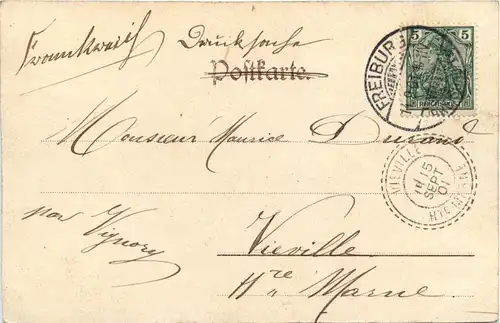 Frankreich
Drucksache
Postkarte.
5 5
FREIBURG
Monsieur Maurice Durand
VIEVILLE
15
SEPT
01
HTE MARNE
par Vignory
Vieville
Hte Marne